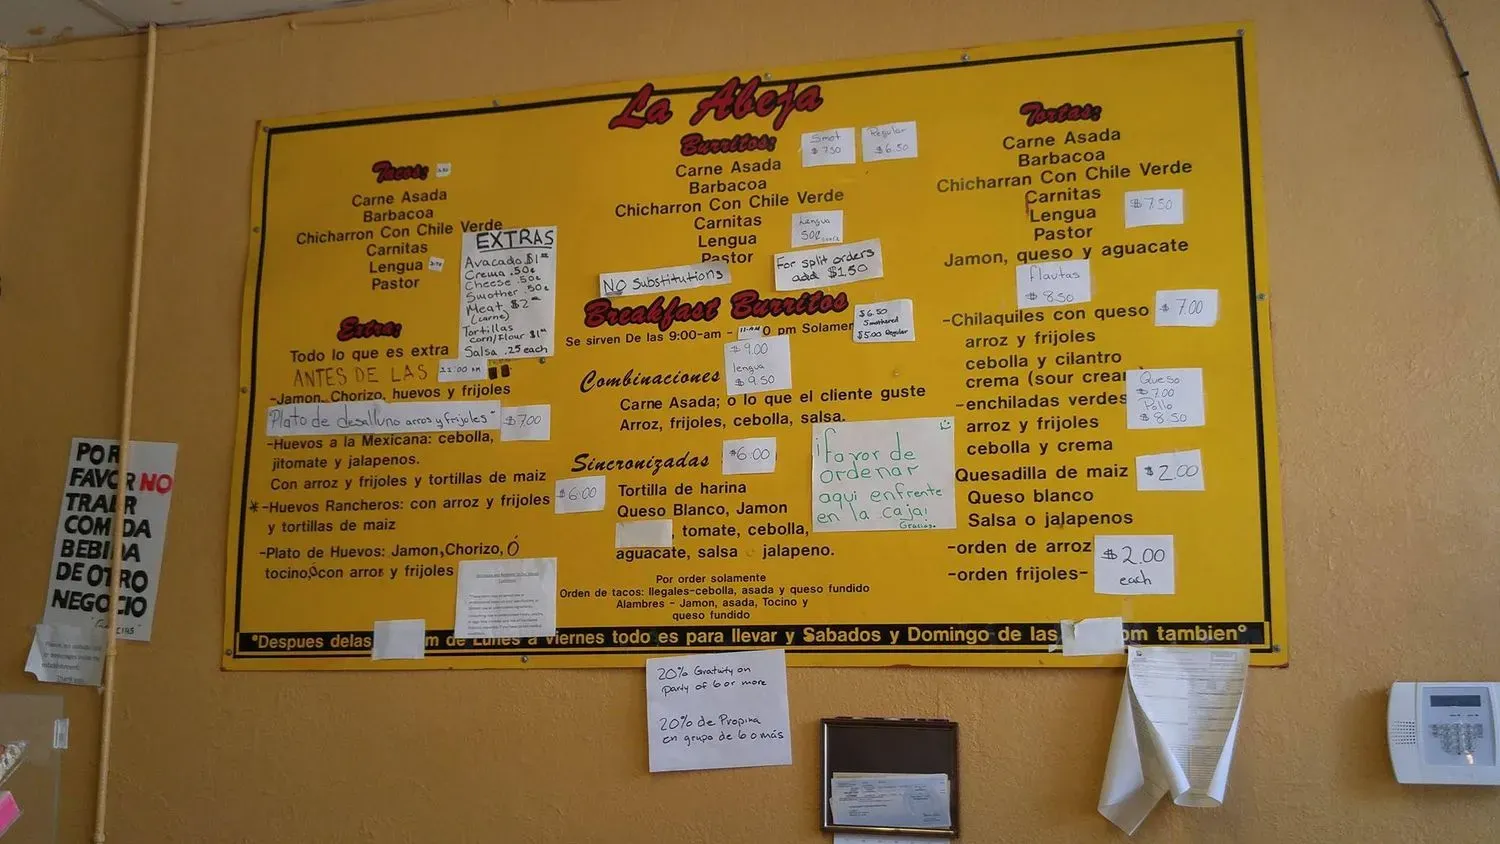 La Abeja
Tacos:
Carne Asada
Barbacoa
Chicharron Con Chile Verde
Carnitas
Lengua
Pastor
EXTRAS
Avacado $1
Crema .50¢
Cheese .50¢
Smother .50¢
Meat $2
(carne)
Tortillas
corn/flour $1
Salsa .25 each
Extra:
Todo lo que es extra
ANTES DE LAS 11:00 AM
-Jamon, Chorizo, huevos y frijoles
Plato de desalluno arros y frijoles" $7.00
-Huevos a la Mexicana: cebolla,
jitomate y jalapenos.
Con arroz y frijoles y tortillas de maiz
*-Huevos Rancheros: con arroz y frijoles $6.00
y tortillas de maiz
-Plato de Huevos: Jamon, Chorizo, Ó
tocino,ó con arroz y frijoles
Burritos:
Smot $7.50
Regular $6.50
Carne Asada
Barbacoa
Chicharron Con Chile Verde
Carnitas
Lengua
Pastor
Lengua
50¢
NO Substitutions
For split orders
add $1.50
Breakfast Burritos
$6.50
Smothered
$5.00 Regular
Se sirven De las 9:00-am - 11 AM 0 pm Solamen
Combinaciones
$9.00
lengua
$9.50
Carne Asada; o lo que el cliente guste
Arroz, frijoles, cebolla, salsa.
Sincronizadas $6.00
Tortilla de harina
Queso Blanco, Jamon
, tomate, cebolla,
aguacate, salsa o jalapeno.
¡Favor de
ordenar
aqui enfrente
en la caja!
Gracias.
Por order solamente
Orden de tacos: Ilegales-cebolla, asada y queso fundido
Alambres - Jamon, asada, Tocino y
queso fundido
Tortas:
Carne Asada
Barbacoa
Chicharran Con Chile Verde
Carnitas
Lengua
Pastor
$7.50
Jamon, queso y aguacate
flautas
$8.50
-Chilaquiles con queso $7.00
arroz y frijoles
cebolla y cilantro
crema (sour crear
-enchiladas verdes
Queso
$7.00
Pollo
$8.50
arroz y frijoles
cebolla y crema
Quesadilla de maiz $2.00
Queso blanco
Salsa o jalapenos
-orden de arroz
-orden frijoles-
$2.00
each
°Despues delas m de Lunes a Viernes todo es para llevar y Sabados y Domingo de las pm tambien°
20% Gratuity on
party of 6 or more
20% de Propina
en grupo de 6 o más
POR
FAVOR NO
TRAER
COMIDA
BEBIDA
DE OTRO
NEGOCIO
"Gracias"